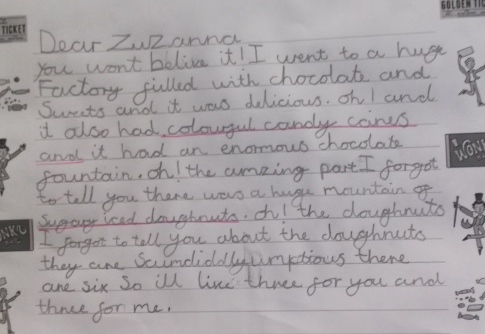 TICKET
GOLDEN TIC
Dear Zuzanna
You wont belive it! I went to a huge
Factory filled with chocolate and
Sweets and it was delicious. oh! and
it also had colourful candy canes
and it had an enormous chocolate
fountain. oh! the amzing part I forgot
to tell you there was a huge mountain of
Sugary iced doughnuts. oh! the doughnuts
I forgot to tell you about the doughnuts
they are Scumdiddlyumptious there
are six So ill live three for you and
three for me.
WONK
WONK'